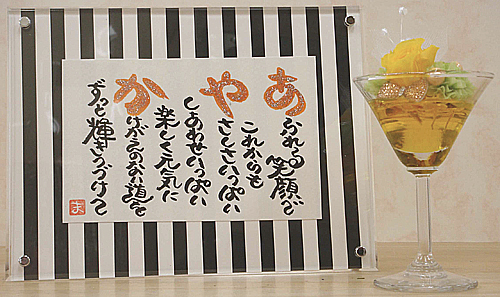 あふれる笑顔で
これからも
やさしさいっぱい
しあわせいっぱい
楽しく元気に
かけがえのない道を
ずっと輝きつづけて
ま